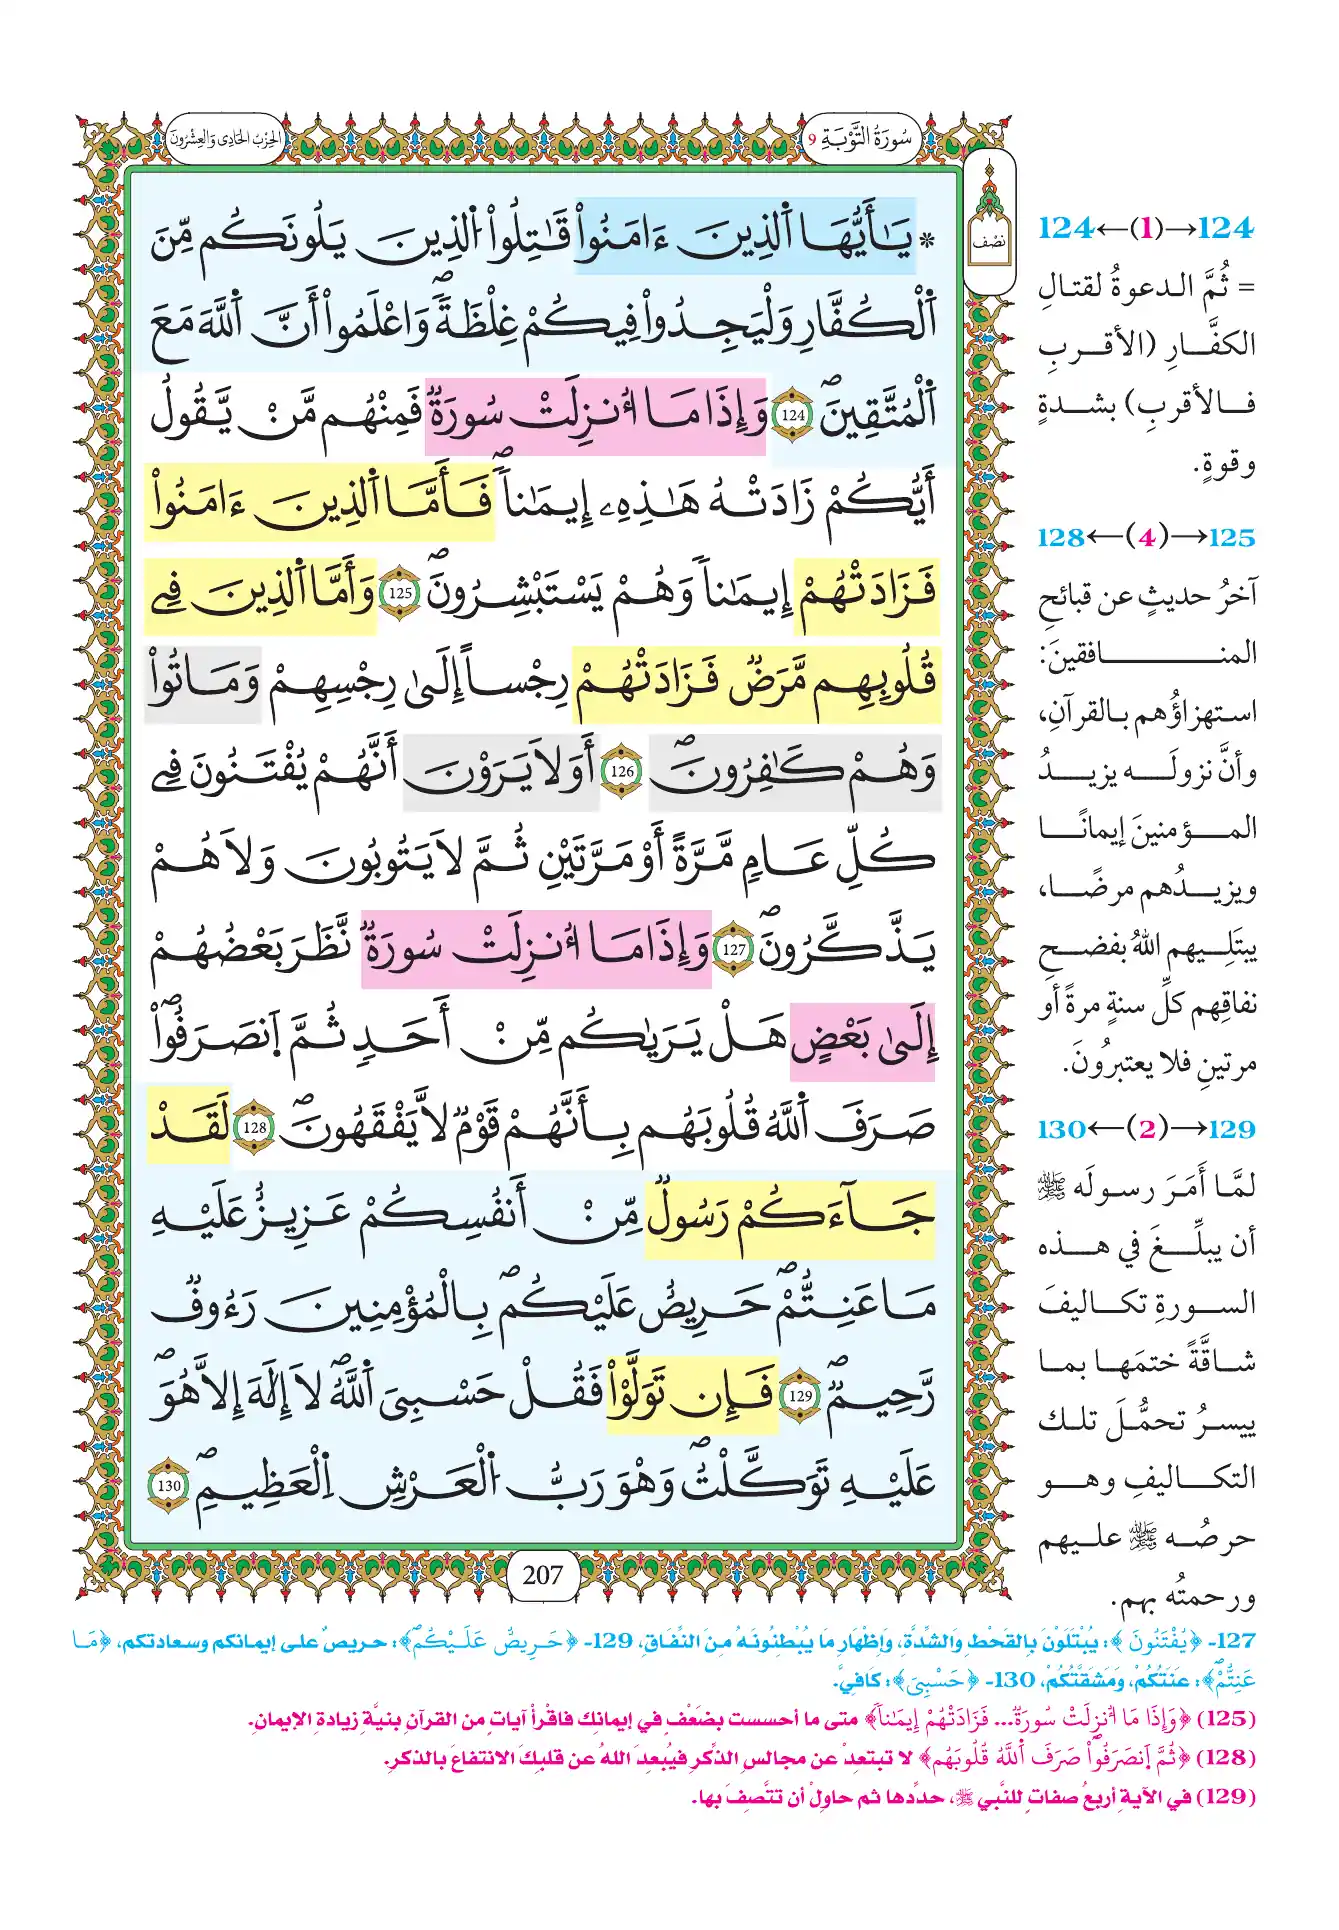 سُورَةُ التَّوْبَةِ 9
الحِزْبُ الحَادِى وَالعِشْرُونَ
نصْف
* يَـٰٓأَيُّهَا اَ۬لذِينَ ءَامَنُواْ قَٰتِلُواْ اُ۬لذِينَ يَلُونَكُم مِّنَ
اَ۬لْكُفَّارِ وَلْيَجِدُواْ فِيكُمْ غِلْظَةٗۖ وَاعْلَمُوٓاْ أَنَّ اَ۬للَّهَ مَعَ
اَ۬لْمُتَّقِينَۖ 124 وَإِذَا مَآ أُنزِلَتْ سُورَةٞ فَمِنْهُم مَّنْ يَّقُولُ
أَيُّكُمْ زَادَتْهُ هَٰذِهِۦٓ إِيمَٰناٗۖ فَأَمَّا اَ۬لذِينَ ءَامَنُواْ
فَزَادَتْهُمْ إِيمَٰناٗ وَهُمْ يَسْتَبْشِرُونَۖ 125 وَأَمَّا اَ۬لذِينَ فِے
قُلُوبِهِم مَّرَضٞ فَزَادَتْهُمْ رِجْساً إِلَىٰ رِجْسِهِمْ وَمَاتُواْ
وَهُمْ كَٰفِرُونَۖ 126 أَوَلَا يَرَوْنَ أَنَّهُمْ يُفْتَنُونَ فِے
كُلِّ عَامٖ مَّرَّةً أَوْ مَرَّتَيْنِ ثُمَّ لَا يَتُوبُونَ وَلَا هُمْ
يَذَّكَّرُونَۖ 127 وَإِذَا مَآ أُنزِلَتْ سُورَةٞ نَّظَرَ بَعْضُهُمْ
إِلَىٰ بَعْضٍ هَلْ يَرَىٰكُم مِّنْ أَحَدٖ ثُمَّ اَ۪نصَرَفُواْۖ
صَرَفَ اَ۬للَّهُ قُلُوبَهُم بِأَنَّهُمْ قَوْمٞ لَّا يَفْقَهُونَۖ 128 لَقَدْ
جَآءَكُمْ رَسُولٞ مِّنْ أَنفُسِكُمْ عَزِيزٌ عَلَيْهِ
مَا عَنِتُّمْۖ حَرِيصٌ عَلَيْكُمۖ بِالْمُؤْمِنِينَ رَءُوفٞ
رَّحِيمٞۖ 129 فَإِن تَوَلَّوْاْ فَقُلْ حَسْبِىَ اَ۬للَّهُۖ لَآ إِلَٰهَ إِلَّا هُوَۖ
عَلَيْهِ تَوَكَّلْتُۖ وَهُوَ رَبُّ اُ۬لْعَرْشِ اِ۬لْعَظِيمِۖ 130
207
124←(1)→124
= ثُمَّ الدعوةُ لقتالِ
الكفَّارِ (الأقربِ
فالأقربِ) بشدةٍ
وقوةٍ.
125←(4)→128
آخرُ حديثٍ عن قبائحِ
المنافقينَ:
استهزاؤُهم بالقرآنِ،
وأنَّ نزولَه يزيدُ
المؤمنينَ إيمانًا
ويزيدُهم مرضًا،
يبتَلِيهم اللهُ بفضحِ
نفاقِهم كلِّ سنةٍ مرةً أو
مرتينِ فلا يعتبرُونَ.
129←(2)→130
لمَّا أَمَرَ رسولَه ﷺ
أن يبلِّغَ في هذه
السورةِ تكاليفَ
شاقَّةً ختمَها بما
ييسرُ تحمُّلَ تلك
التكاليفِ وهو
حرصُه ﷺ عليهم
ورحمتُه بهم.
127- ﴿يُفْتَنُونَ﴾: يُبْتَلَوْنَ بِالقَحْطِ وَالشِّدَّةِ، وَإِظْهَارِ مَا يُبْطِنُونَهُ مِنَ النِّفَاقِ، 129- ﴿حَرِيصٌ عَلَيْكُمۖ﴾: حريصٌ على إيمانكم وسعادتكم، ﴿مَا
عَنِتُّمْۖ﴾: عَنَتُكُمْ، وَمَشَقَّتُكُمْ، 130- ﴿حَسْبِىَ﴾: كَافِيَّ.
(125) ﴿وَإِذَا مَآ أُنزِلَتْ سُورَةٞ... فَزَادَتْهُمْ إِيمَٰناٗ﴾ متى ما أحسست بضَعْفٍ في إيمانِكَ فاقرأْ آياتٍ من القرآنِ بنيَّةِ زيادةِ الإيمانِ.
(128) ﴿ثُمَّ اَ۪نصَرَفُواْۖ صَرَفَ اَ۬للَّهُ قُلُوبَهُم﴾ لا تبتعدْ عن مجالسِ الذِّكرِ فيُبعدَ اللهُ عن قلبِكَ الانتفاعَ بالذكرِ.
(129) في الآيةِ أربعُ صفاتٍ للنَّبي ﷺ، حدِّدها ثم حاولْ أن تتَّصفَ بها.